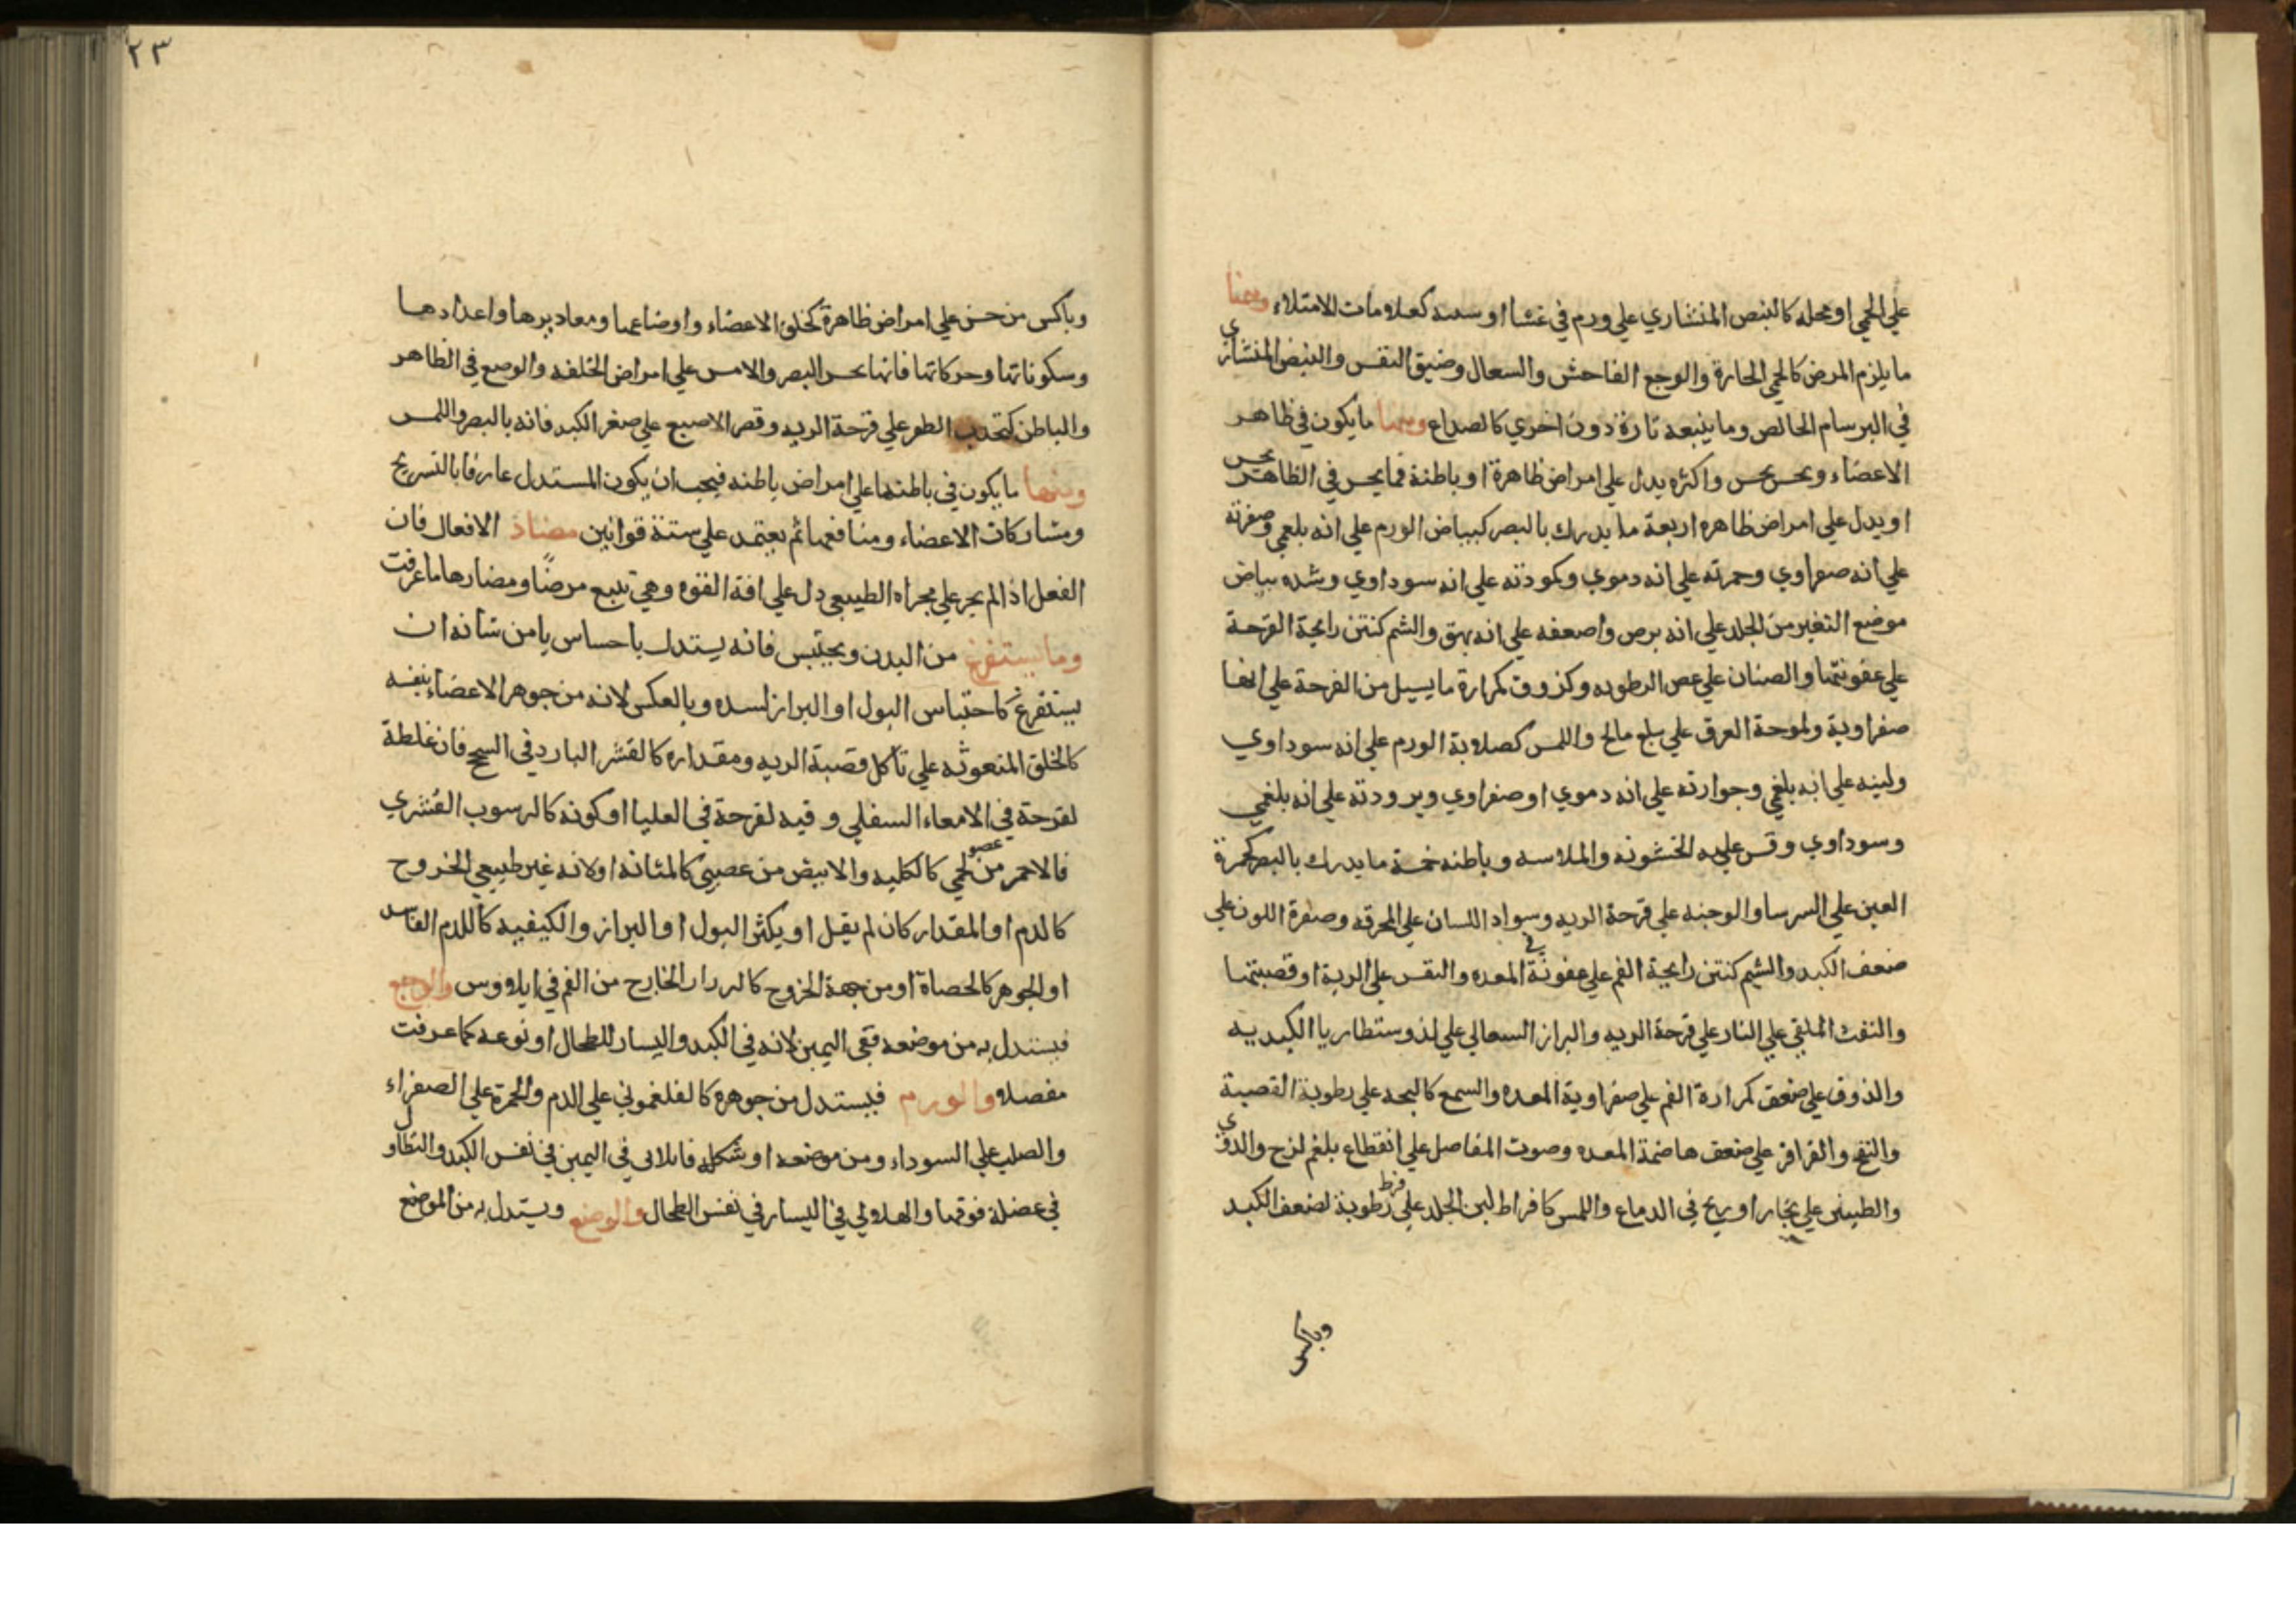 علي الحمي او محله كالنبض المنشاري علي ورم في غشا او كعلامات الامتلاء ومنها
ما يلزم المرض كالحمي الحارة والوجع الفاحش والسعال وضيق النفس والنبض المنشاري
في البرسام الخالص وما يتبعه تارة دون اخري كالصداع ومنها ما يكون في ظاهر
الاعضاء ويحس واكثره يدل علي امراض ظاهرة او باطنة فما يحس في الظاهر
او يدل علي امراض ظاهره اربعة ما يدرك بالبصر كبياض الورم علي انه بلغمي وصفرته
علي انه صفراوي وحمرته علي انه دموي وكمودته علي انه سوداوي وشده بياض
موضع التغير من الجلد علي انه برص واضعفه علي انه بهق والشم كنتن رايحة القرحة
علي عفونتها والصنان علي عفن الرطوبه وكذوق كمرارة ما يسيل من القرحة علي انها
صفراوية ولموحة العرق علي بلغم مالح واللمس كصلابة الورم علي انه سوداوي
ولينه علي انه بلغمي وحرارته علي انه دموي او صفراوي وبرودته علي انه بلغمي
وسوداوي وقس عليه الخشونه والملاسه وباطنه خمسة ما يدرك بالبصر كحمرة
العين علي السرسا والوجنه علي قرحة الريه وسواد اللسان علي المحرقه وصفرة اللون علي
ضعف الكبد والشم كنتن رايحة الفم علي عفونة المعده والنفس علي الرية او قصبتها
والنفث الملقي علي النار علي قرحة الريه والبراز السعالي علي لذوسنطاريا الكبديه
والذوق علي ضعف كمرارة الفم علي صفراوية المعده والسمع كالبحه علي رطوبة القصبة
والنفخ والقراقر علي ضعف هاضمة المعده وصوت المفاصل علي انقطاع بلغم لزج والدوي
والطنين علي بخار او ريح في الدماغ واللمس كافراط لين الجلد علي فرط رطوبة لضعف الكبد
وباكس
٢٣
وباكس من حس علي امراض ظاهرة كخلق الاعضاء واوضاعها ومعاديرها واعدادها
وسكوناتها وحركاتها فانها بحس البصر والامس علي امراض الخلقه والوضع في الظاهر
والباطن كتحدب الظفر علي قرحة الريه وقصر الاصبع علي صغر الكبد فانه بالبصر واللمس
ومنها ما يكون في باطنها علي امراض باطنه فيجب ان يكون المستدل عارفا بالتشريح
ومشاركات الاعضاء ومنافعها ثم يعتمد علي ستة قوانين مضاد الافعال فان
الفعل اذا لم يجر علي مجراه الطبيعي دل علي افة القوه وهي تتبع مرضًا ومضارها ما عرفت
وما يستفرغ من البدن ويحتبس فانه يستدل باحساس يا من شانه ان
يستفرغ كاحتباس البول او البراز لسده وبالعكس لانه من جوهر الاعضاء بنفسه
كالحلق المنعوثه علي تاكل قصبة الريه ومقداره كالقشر البارد في السحج فان غلظة
لقرحة في الامعاء السفلي ورقيه لقرحة في العليا او كونه كالرسوب القشري
فالاحمر من عضو لحمي كالكليه والابيض من عصبي كالمثانه او لانه غير طبيعي الخروج
كالدم او المقدار كان لم يقل او يكثر البول او البراز والكيفيه كاللدم الفاسد
او الجوهر كالحصاة او من جهة الخروج كالبراز الخارج من الفم في ايلاووس والوجع
فيستدل به من موضعه ففي اليمين لانه في الكبد واليسار للطحال او نوعه كما عرفت
مفصله والورم فيستدل من جوهره كالفلغموني علي الدم والحمرة علي الصفراء
والصلب علي السوداء ومن موضعه او شكله فالهلالي في اليمين في نفس الكبد والتطاول
في عضلة فوقها والهلالي في اليسار في نفس الطحال والوضع ويستدل به من الموضع